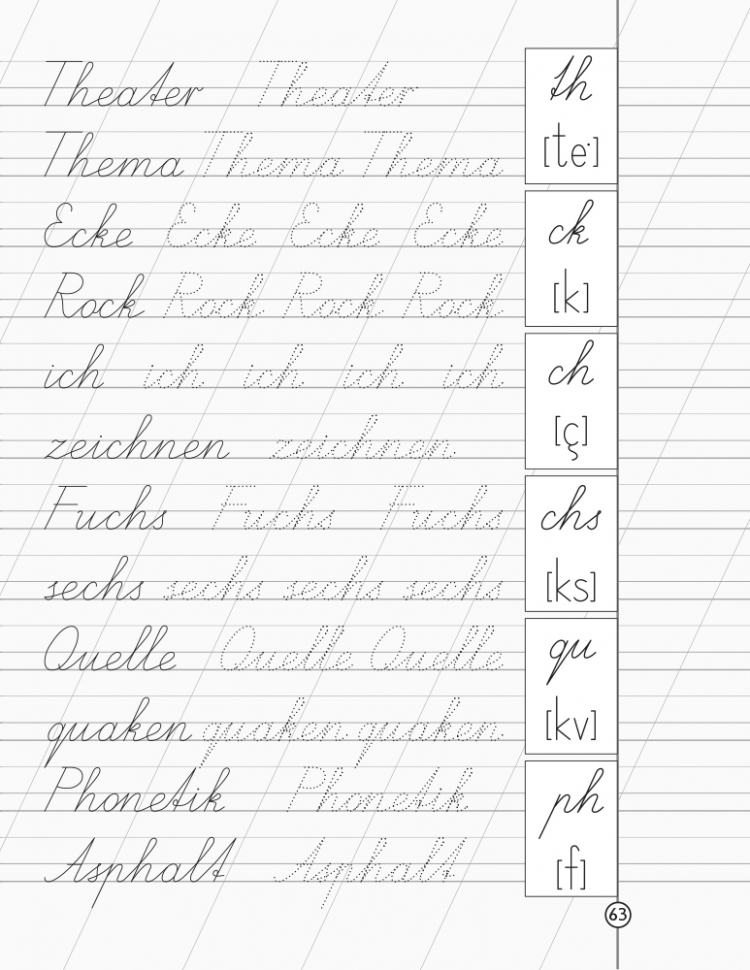 Theater Theater
th
Thema Thema Thema
[te·]
Ecke Ecke Ecke Ecke
ck
Rock Rock Rock Rock
[k]
ich ich ich ich ich
ch
zeichnen zeichnen
[ç]
Fuchs Fuchs Fuchs
chs
sechs sechs sechs sechs
[ks]
Quelle Quelle Quelle
qu
quaken quaken quaken
[kv]
Phonetik Phonetik
ph
Asphalt Asphalt
[f]
63